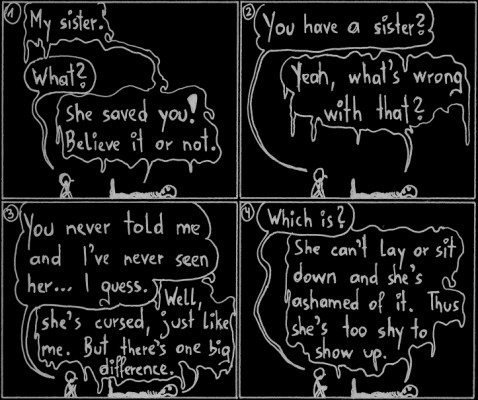 1
My sister.
What?
She saved you!
Believe it or not.
2
You have a sister?
Yeah, what's wrong
with that?
3
You never told me
and I've never seen
her... I guess.
Well,
she's cursed, just like
me. But there's one big
difference.
4
Which is?
She can't lay or sit
down and she's
ashamed of it. Thus
she's too shy to
show up.